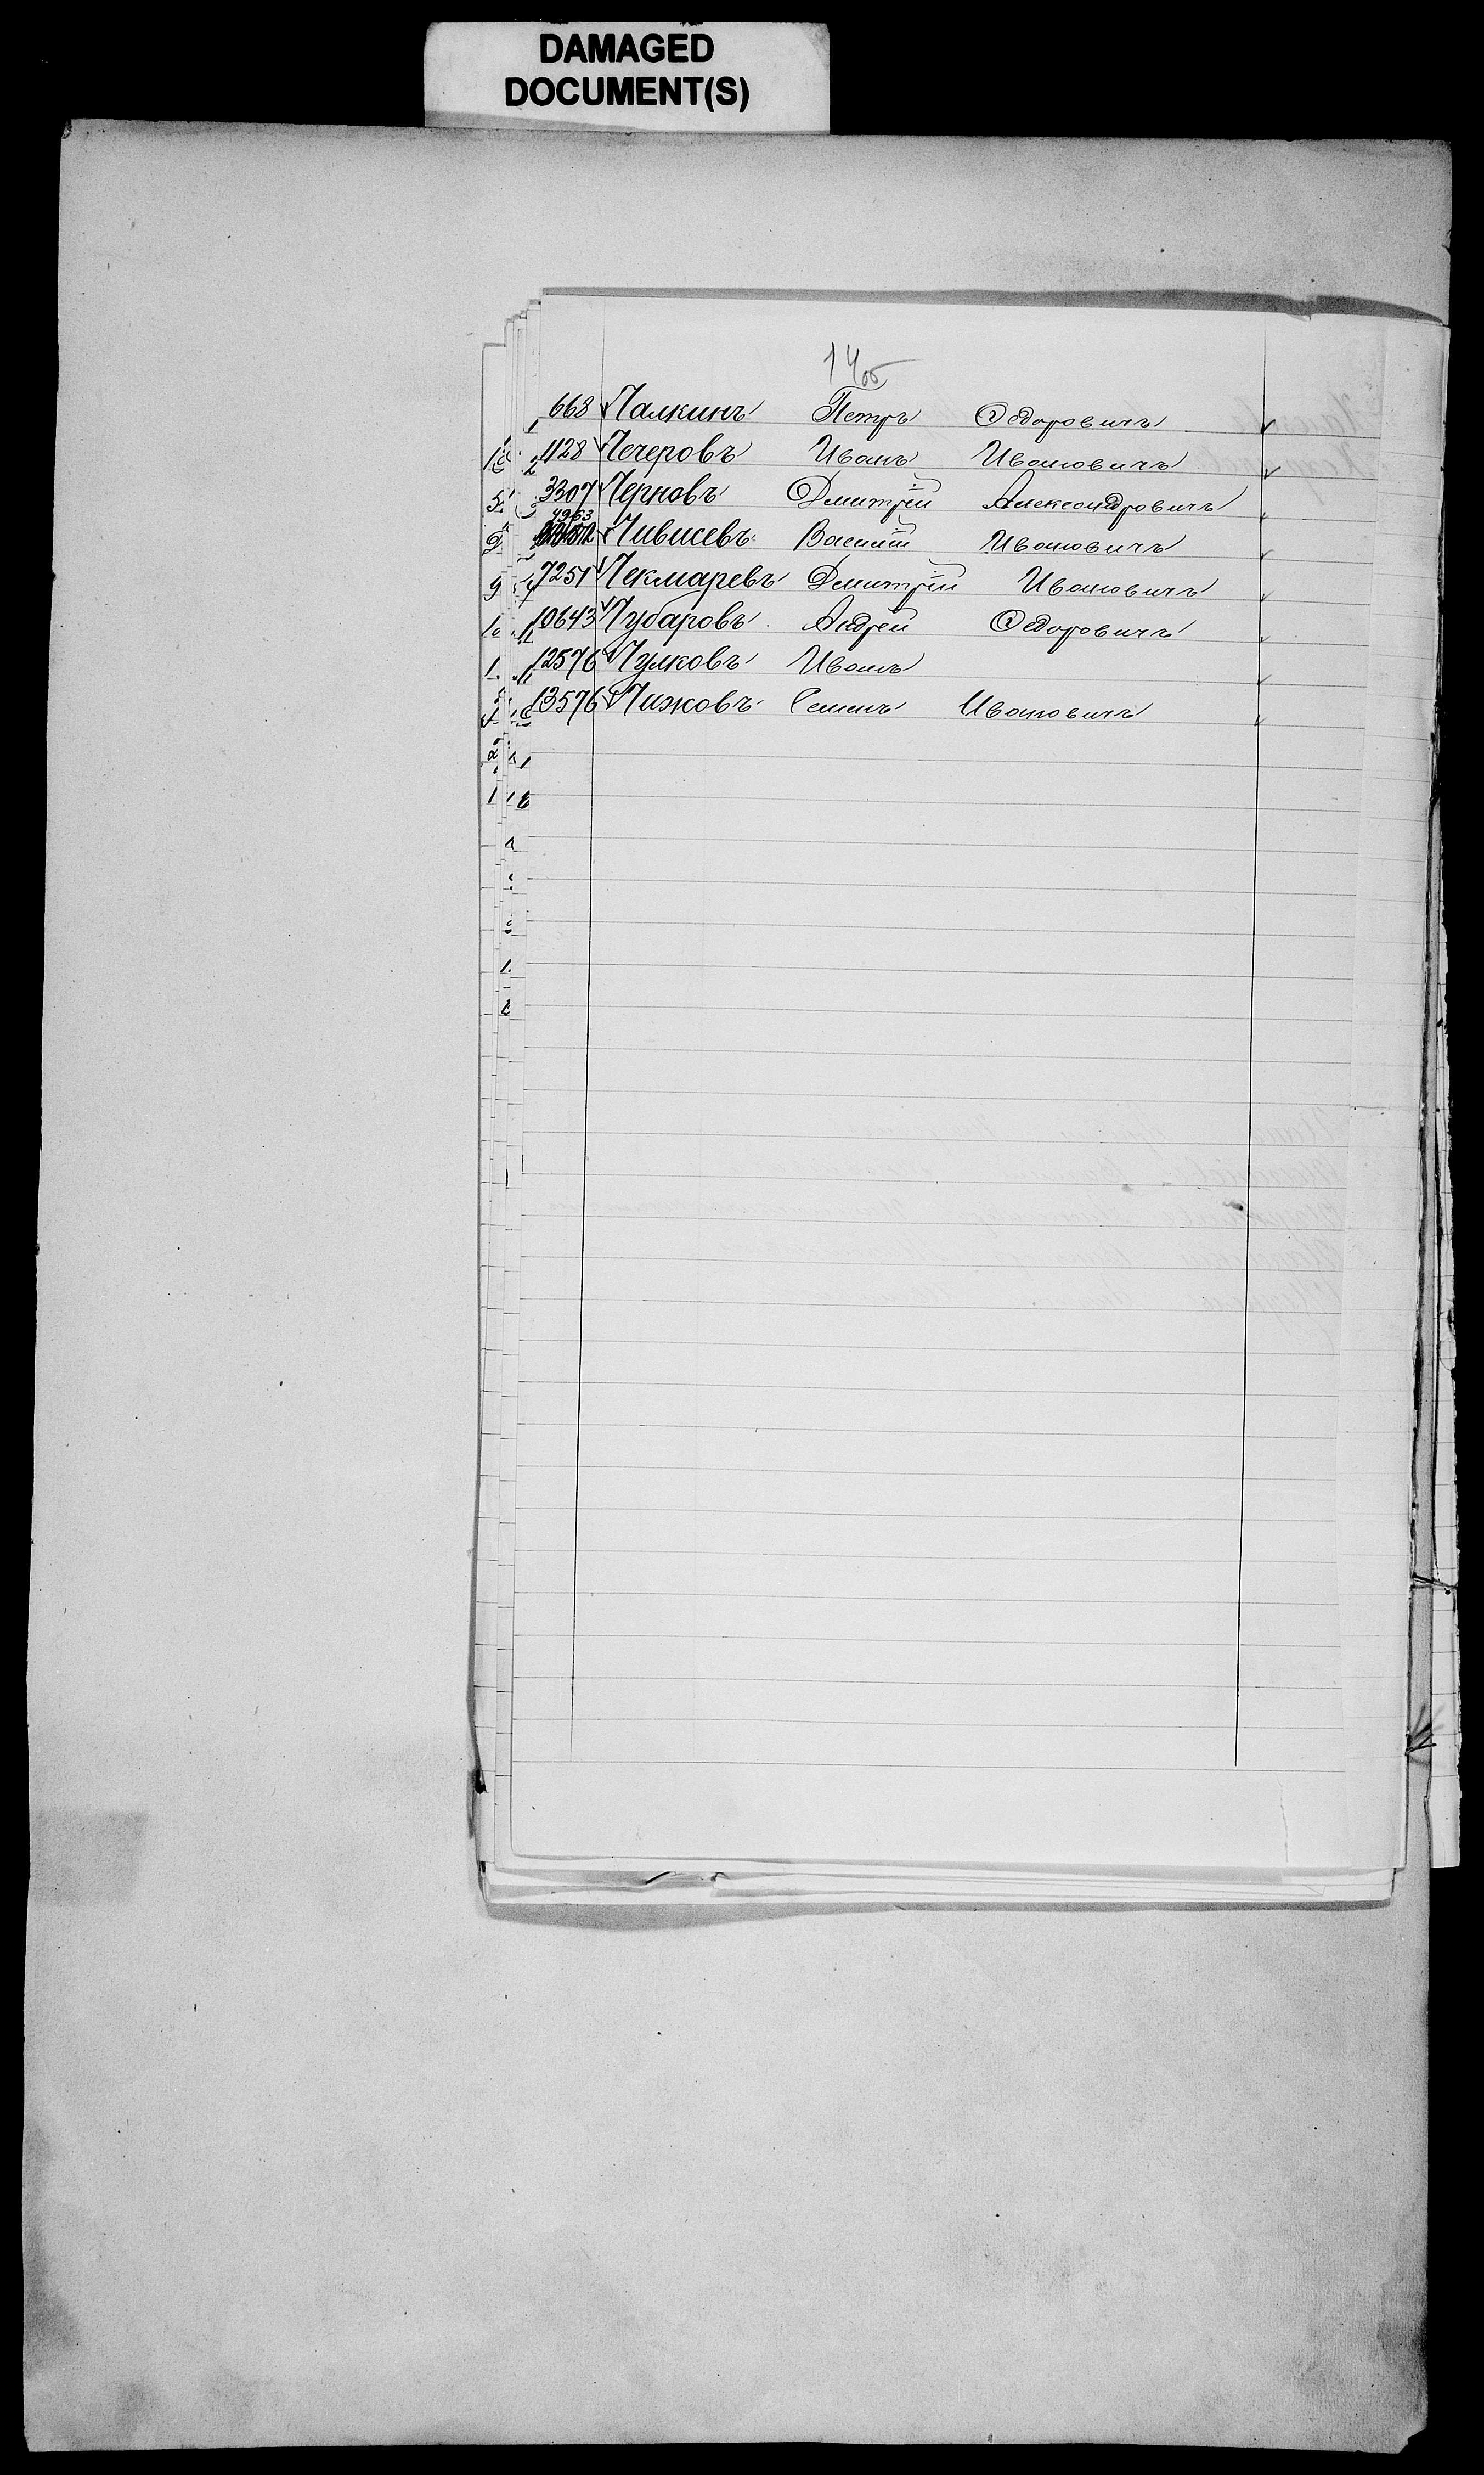 DAMAGED
DOCUMENT(S)
14об
668 Чалкинъ Петръ Ѳедоровичъ
1128 Чечеровъ Иванъ Ивановичъ
3307 Черновъ Дмитрій Александровичъ
4963
Чивисевъ Василій Ивановичъ
7251 Чекмаревъ Дмитрій Ивановичъ
10643 Чубаровъ Андрей Ѳедоровичъ
12576 Чулковъ Иванъ
13576 Чижовъ Семенъ Ивановичъ